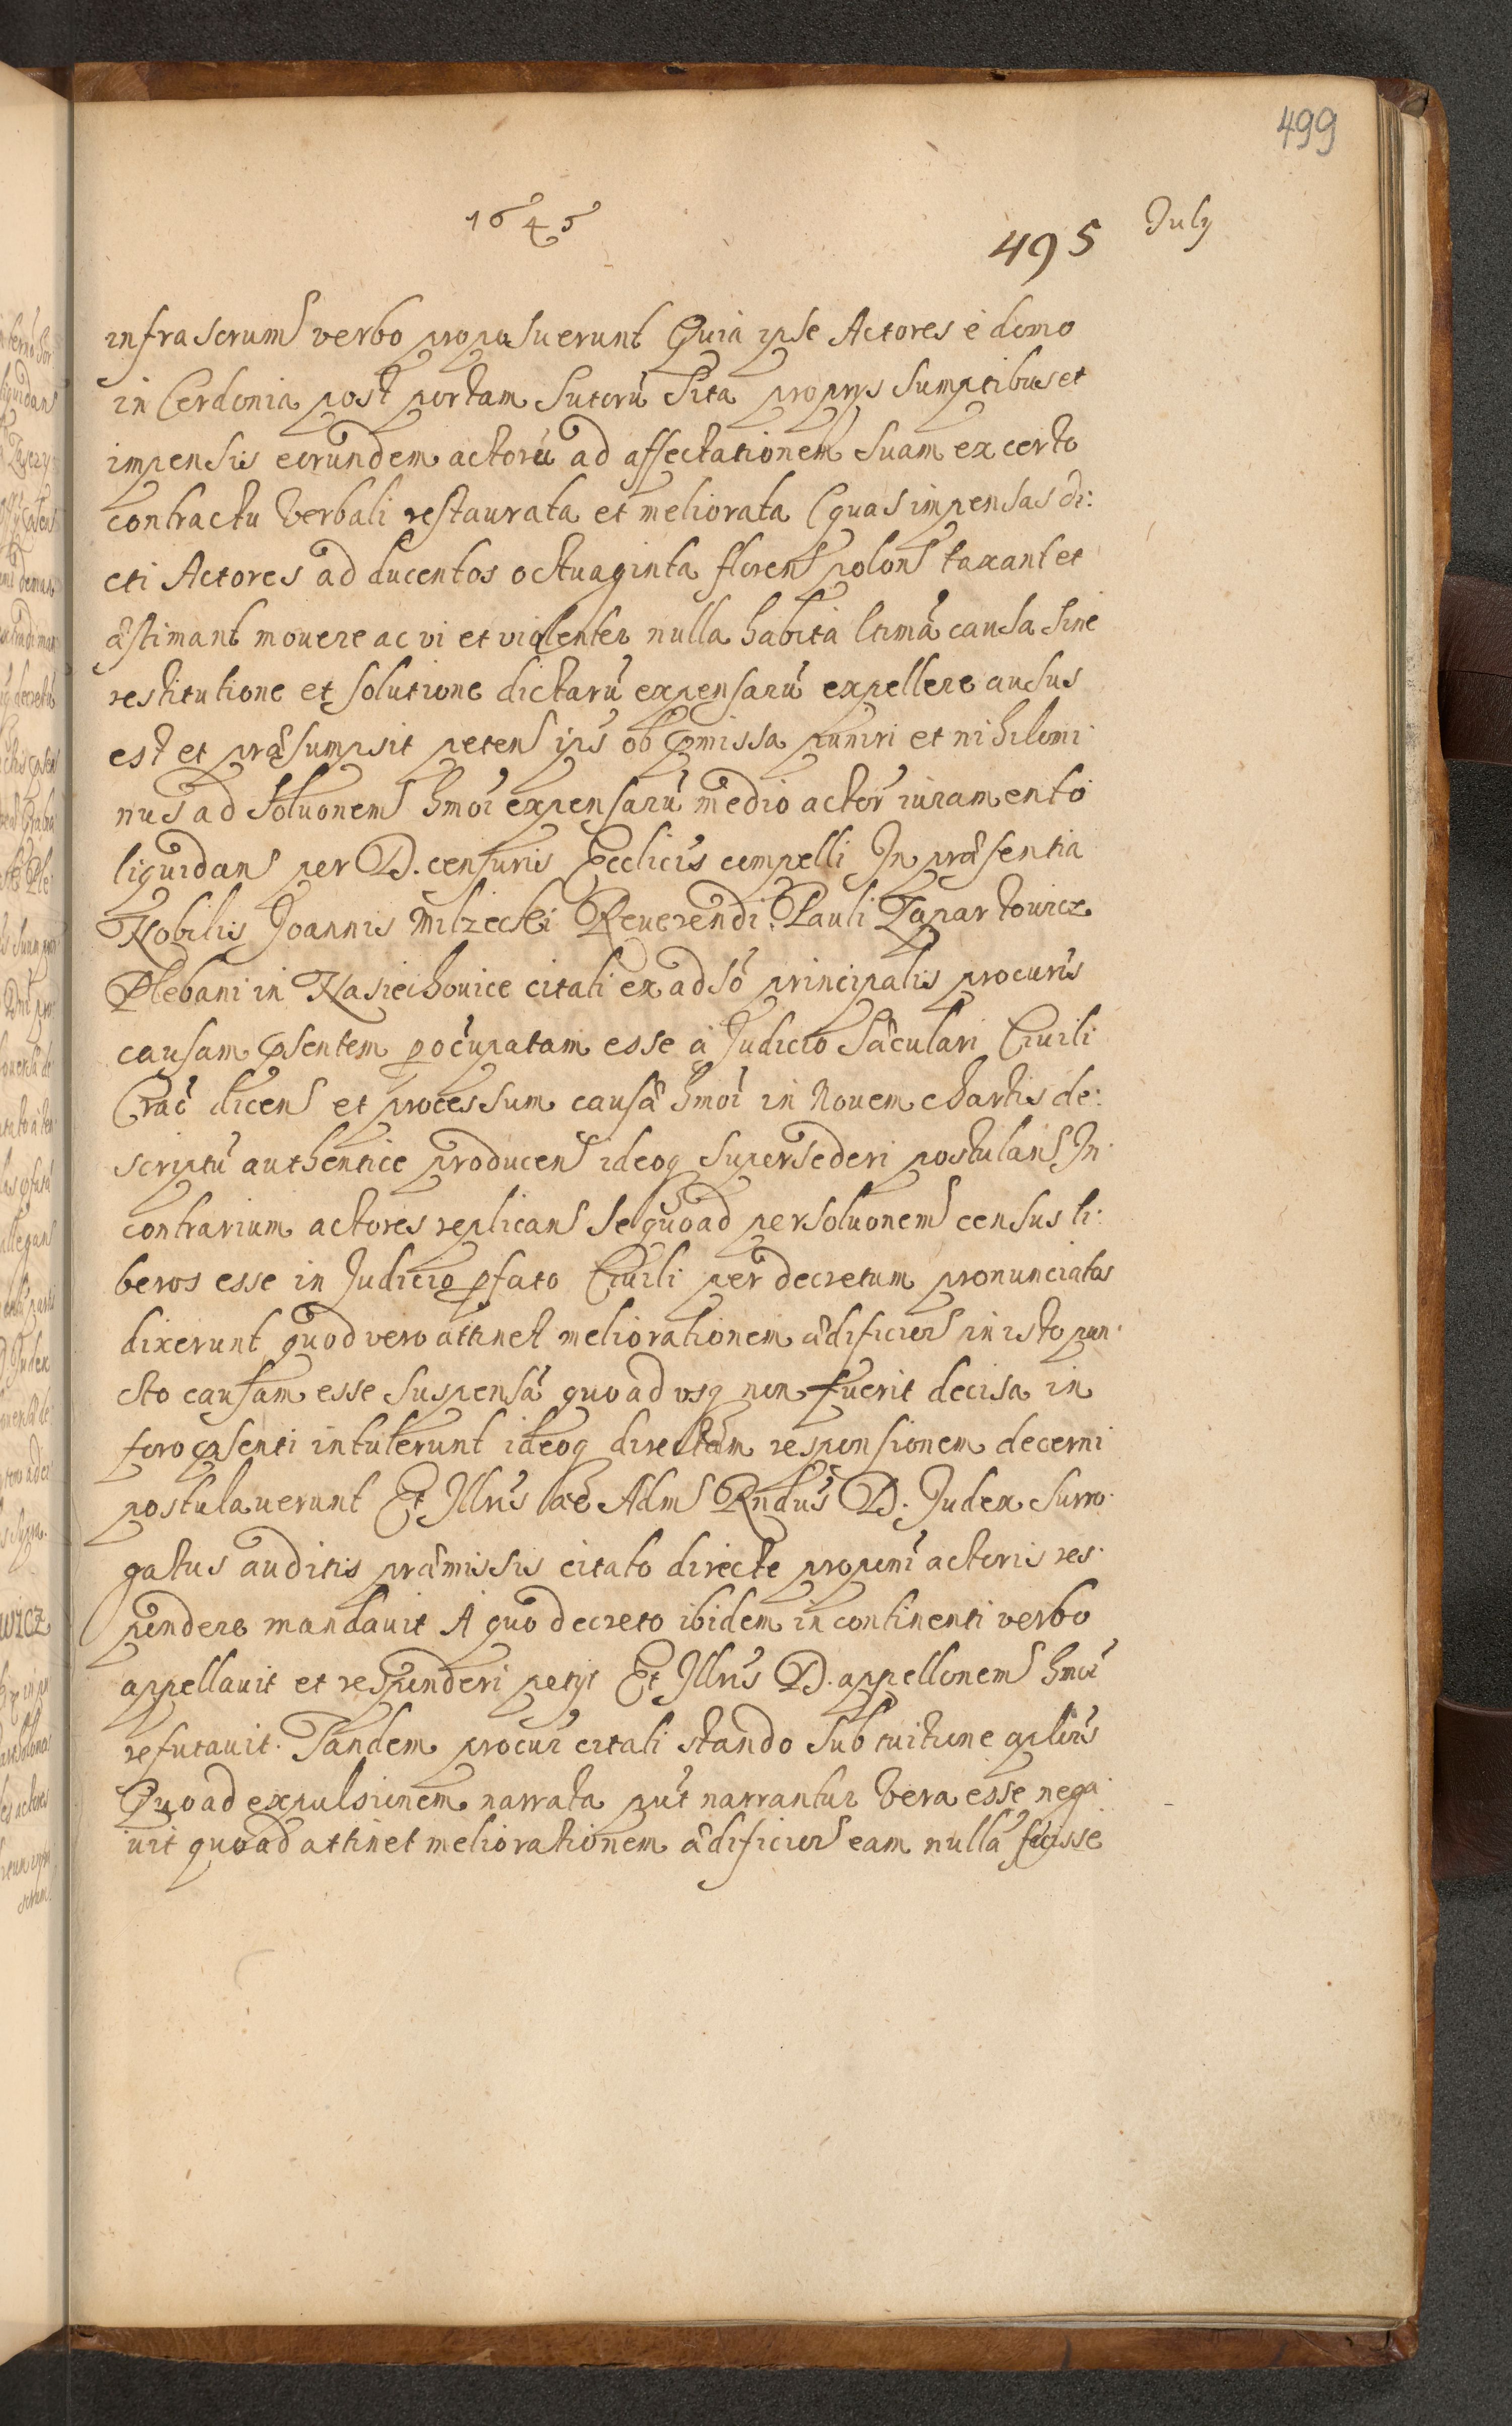 499
1645
495 July
infrascrum verbo proposuerunt Quia ipse Actores è domo
in Cerdonia post portam Sutorū sita proprys sumptibus et
impensis eorundem actorū ad affectationem suam ex certo
contractu verbali restaurata et meliorata (quas impensas di:
cti Actores ad ducentos octuaginta floren polon taxant et
æstimant movere ac vi et violenter nulla habita ltimâ causa sine
restitutione et solutione dictarū expensarū expellere ausus
est et præsumpsit peten ips ob præmissa puniri et nihilomi
nus ad solvonem hmōi expensarū medio actor iuramento
liquidan per D. censuris Ecclicis compelli In præsentia
Nobilis Joannis Milzecki Reverendi Pauli Taparkowicz
Plebani in Kasiechovice citati ex adso principalis procuris
causam psentem pocupatam esse à Judicio Sæculari Civili
Crac dicen et processum causæ hmōi in novem chartis de:
scriptū authentice producen ideoq supersederi postulans In
contrarium actores replican se quoad persolvonem census li:
beros esse in Judicio pfato Civili per decretum pronunciatos
dixerunt quod vero attinet meliorationem ædificior in isto pun
cto causam esse suspensā quoad usq non fuerit decisa in
foro psenti intulerunt ideoq directam responsionem decerni
postulaverunt Et Illris ac Adm Rndus D. Judex Surro
gatus auditis præmissis citato directe proponi actoris res
pondere mandavit A quo decreto ibidem in continenti verbo
appellavit et responderi petyt Et Illris D. appellonem hmōi
refutavit. Tandem procur citati stando sub tuitione aplōis
Quoad expulsionem narrata put narrantur vera esse nega
vit quoad attinet meliorationem ædificior eam nullā fuisse